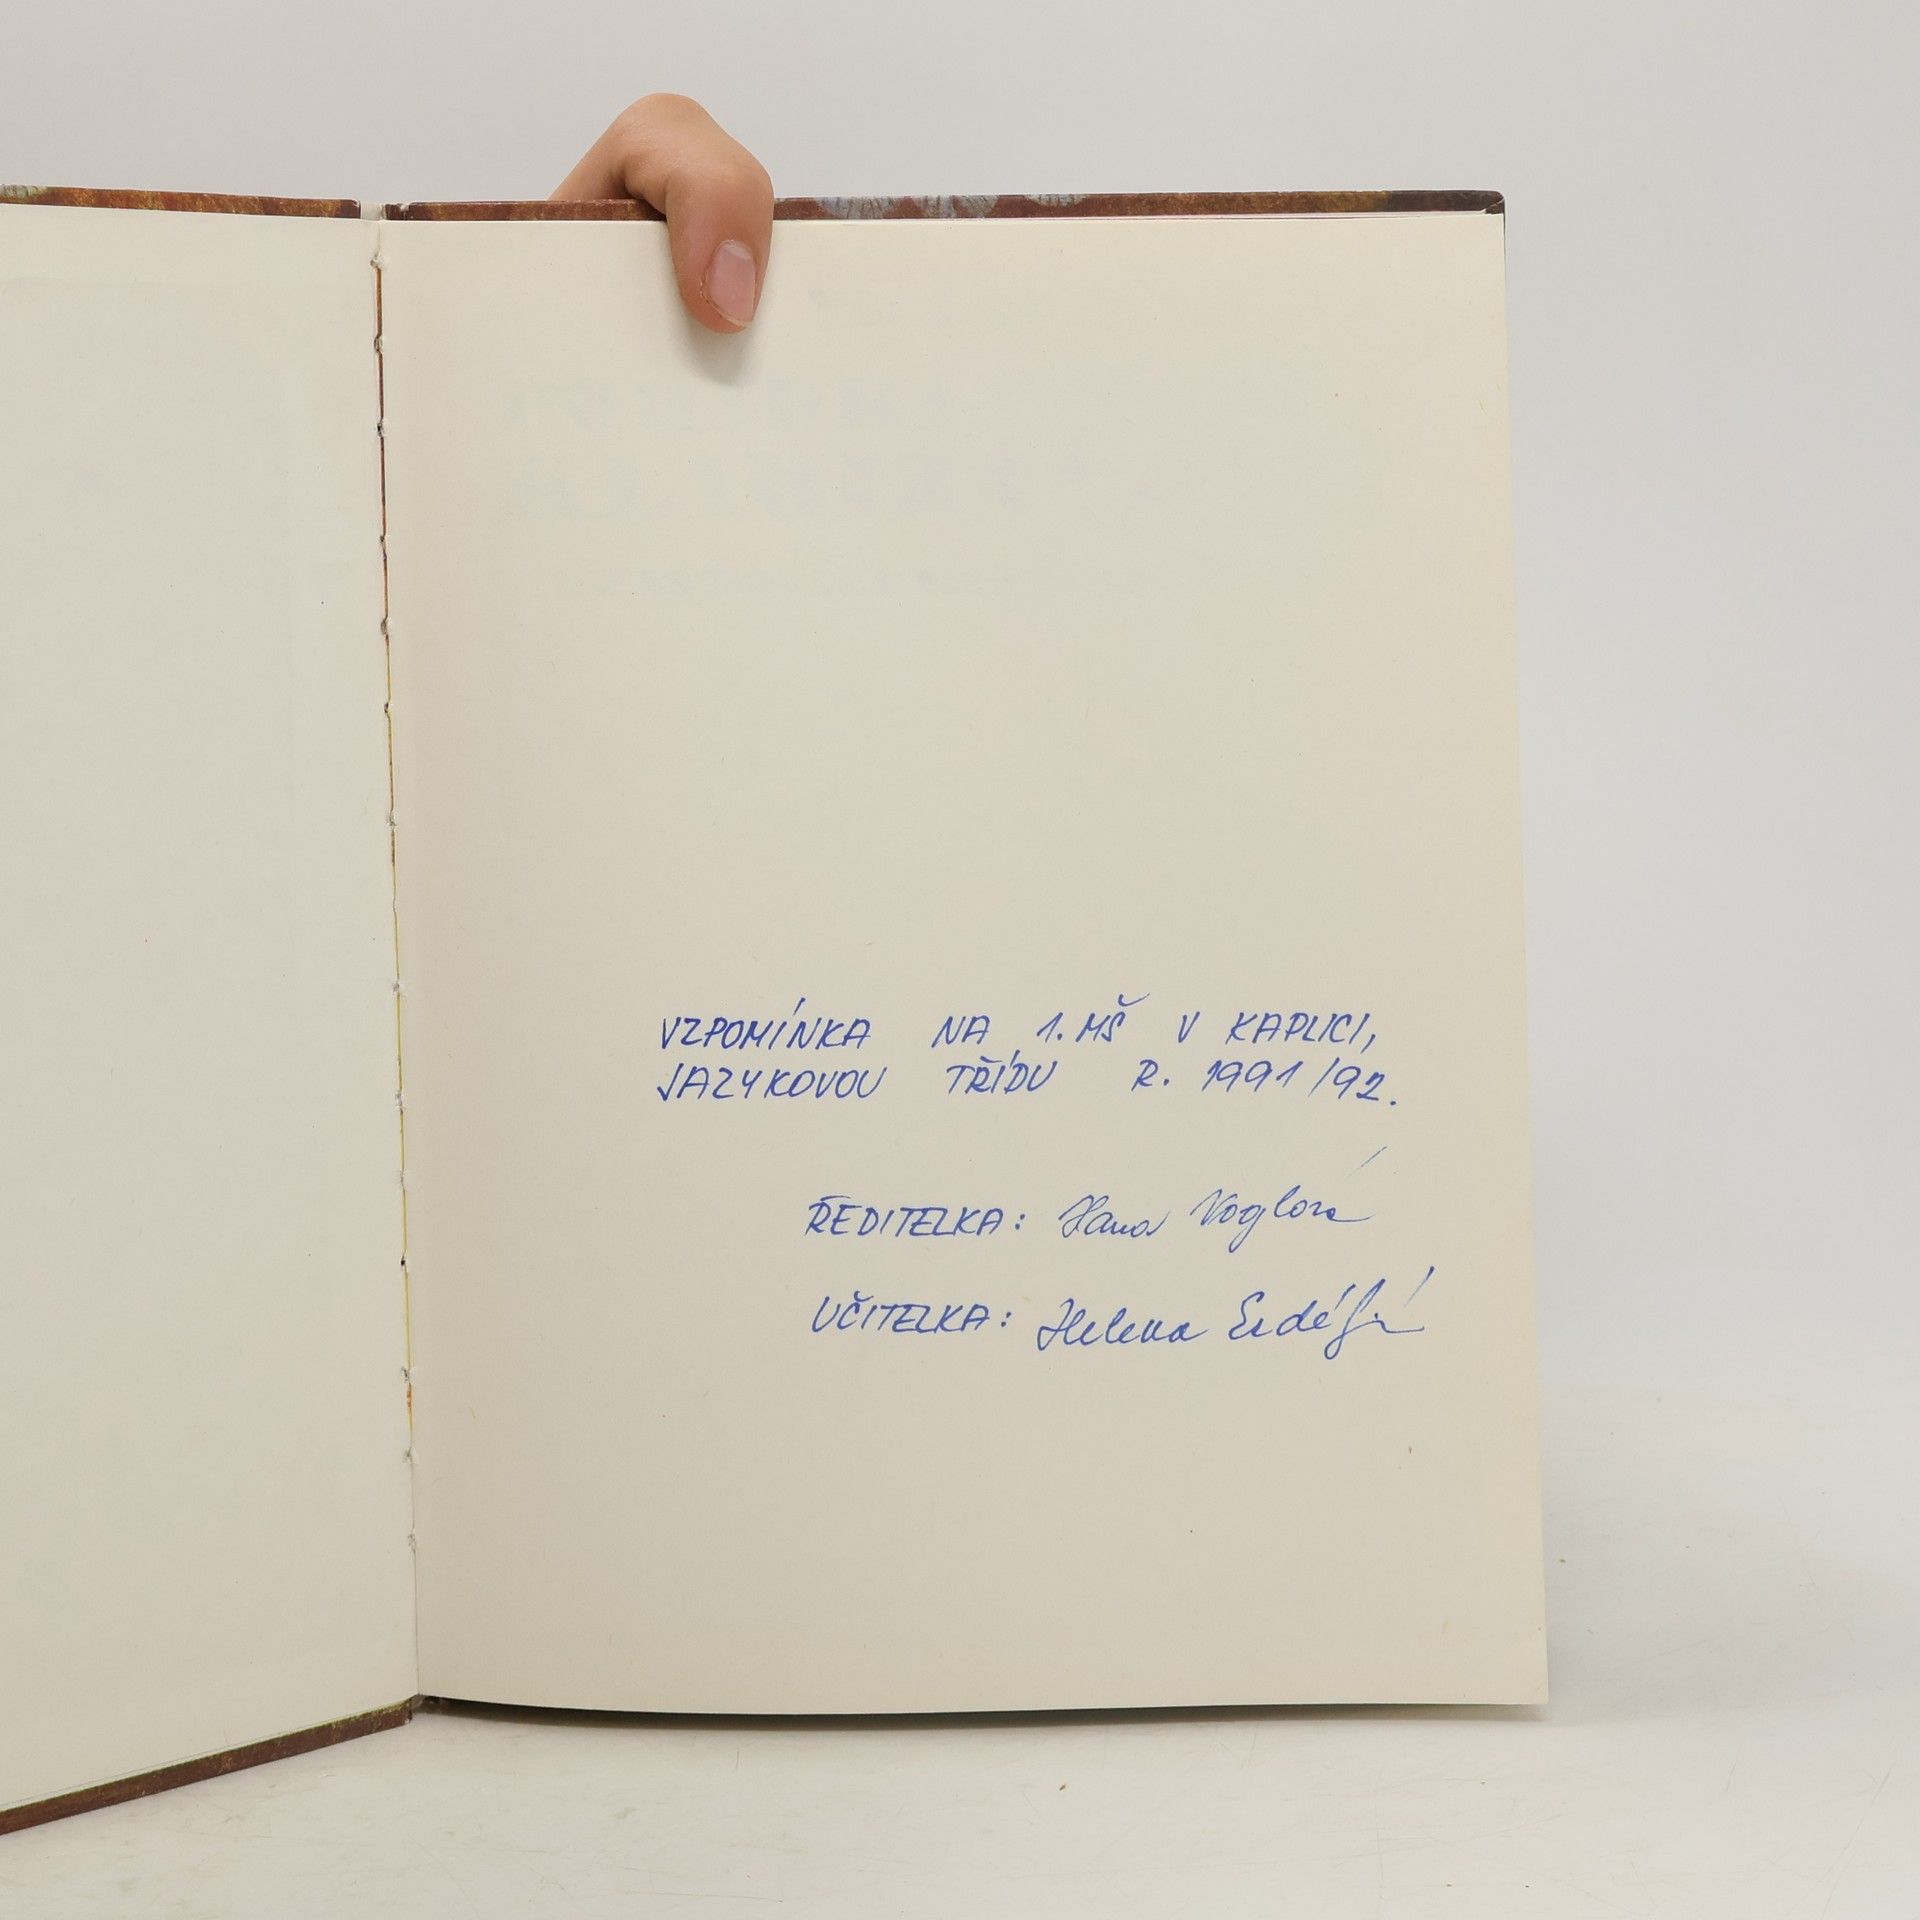 VZPOMÍNKA NA 1. MŠ V KAPLICI,
JAZYKOVOU TŘÍDU R. 1991/92.
ŘEDITELKA: Hana Voglová
UČITELKA: Helena